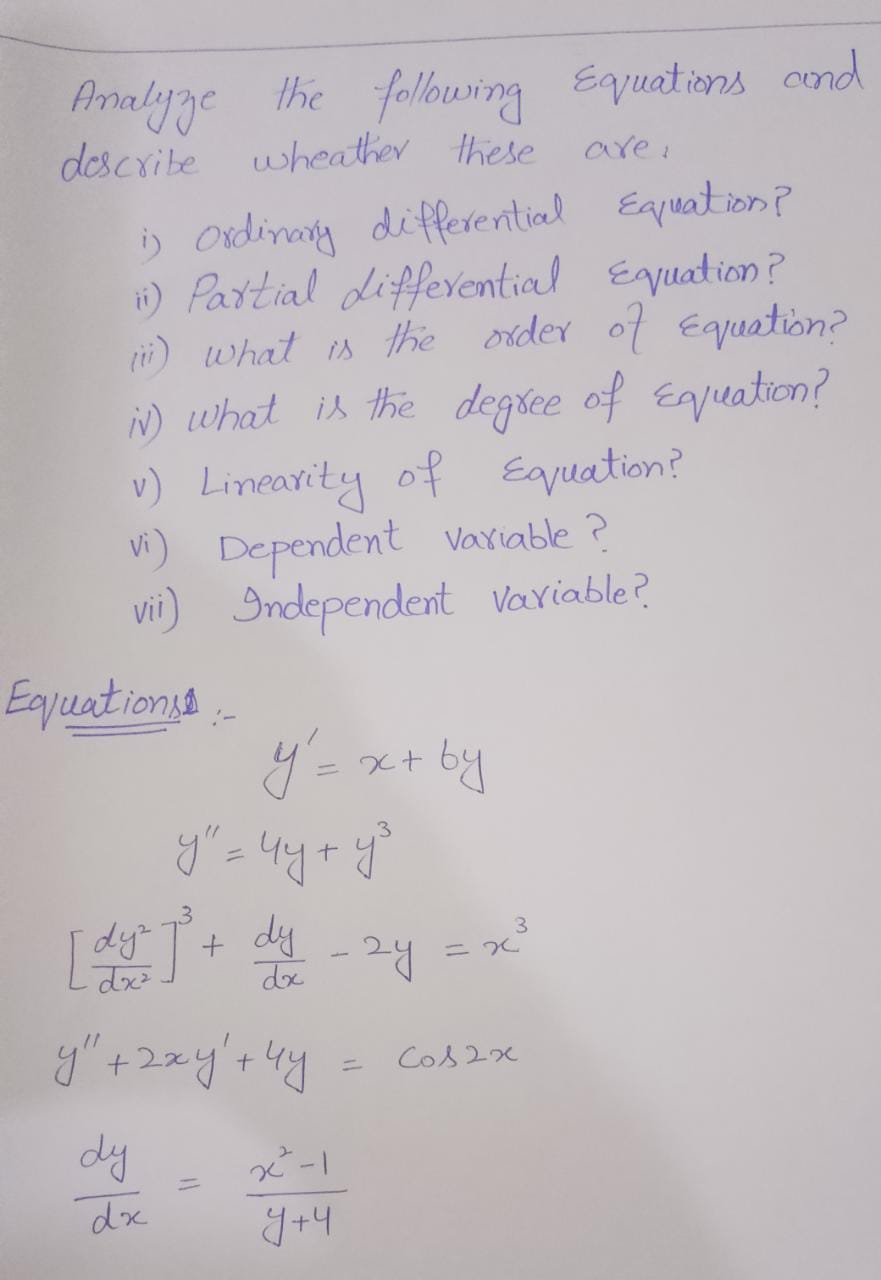 Analyze the following Equations and
describe wheather these are:
i) Ordinary differential Equation?
ii) Partial differential Equation?
iii) what is the order of Equation?
iv) what is the degree of Equation?
v) Linearity of Equation?
vi) Dependent variable?
vii) Independent variable?
Equations :-
y' = x + 6y
y'' = 4y + y³
[dy²/dx²]³ + dy/dx - 2y = x³
y'' + 2xy' + 4y = Cos2x
dy/dx = x²-1/y+4